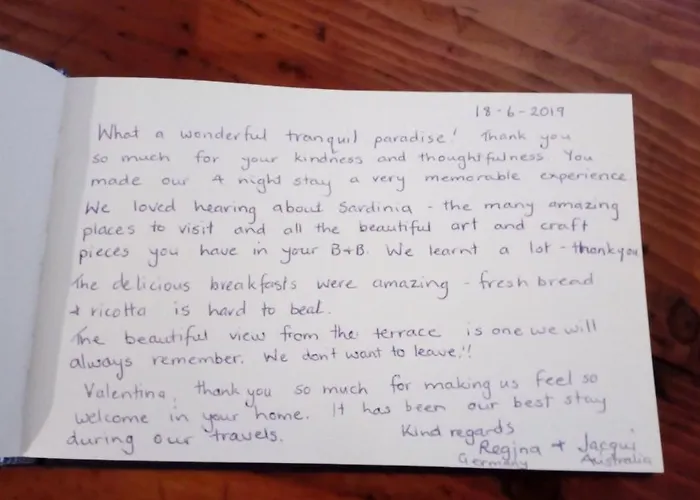 18-6-2019
What a wonderful tranquil paradise! Thank you
so much for your kindness and thoughtfulness. You
made our 4 night stay a very memorable experience
We loved hearing about Sardinia - the many amazing
places to visit and all the beautiful art and craft
pieces you have in your B+B. We learnt a lot - thankyou
The delicious breakfasts were amazing - fresh bread
+ ricotta is hard to beat.
The beautiful view from the terrace is one we will
always remember. We don't want to leave!!
Valentina, thank you so much for making us feel so
welcome in your home. It has been our best stay
during our travels.
Kind regards
Regina + Jacqui
Germany Australia